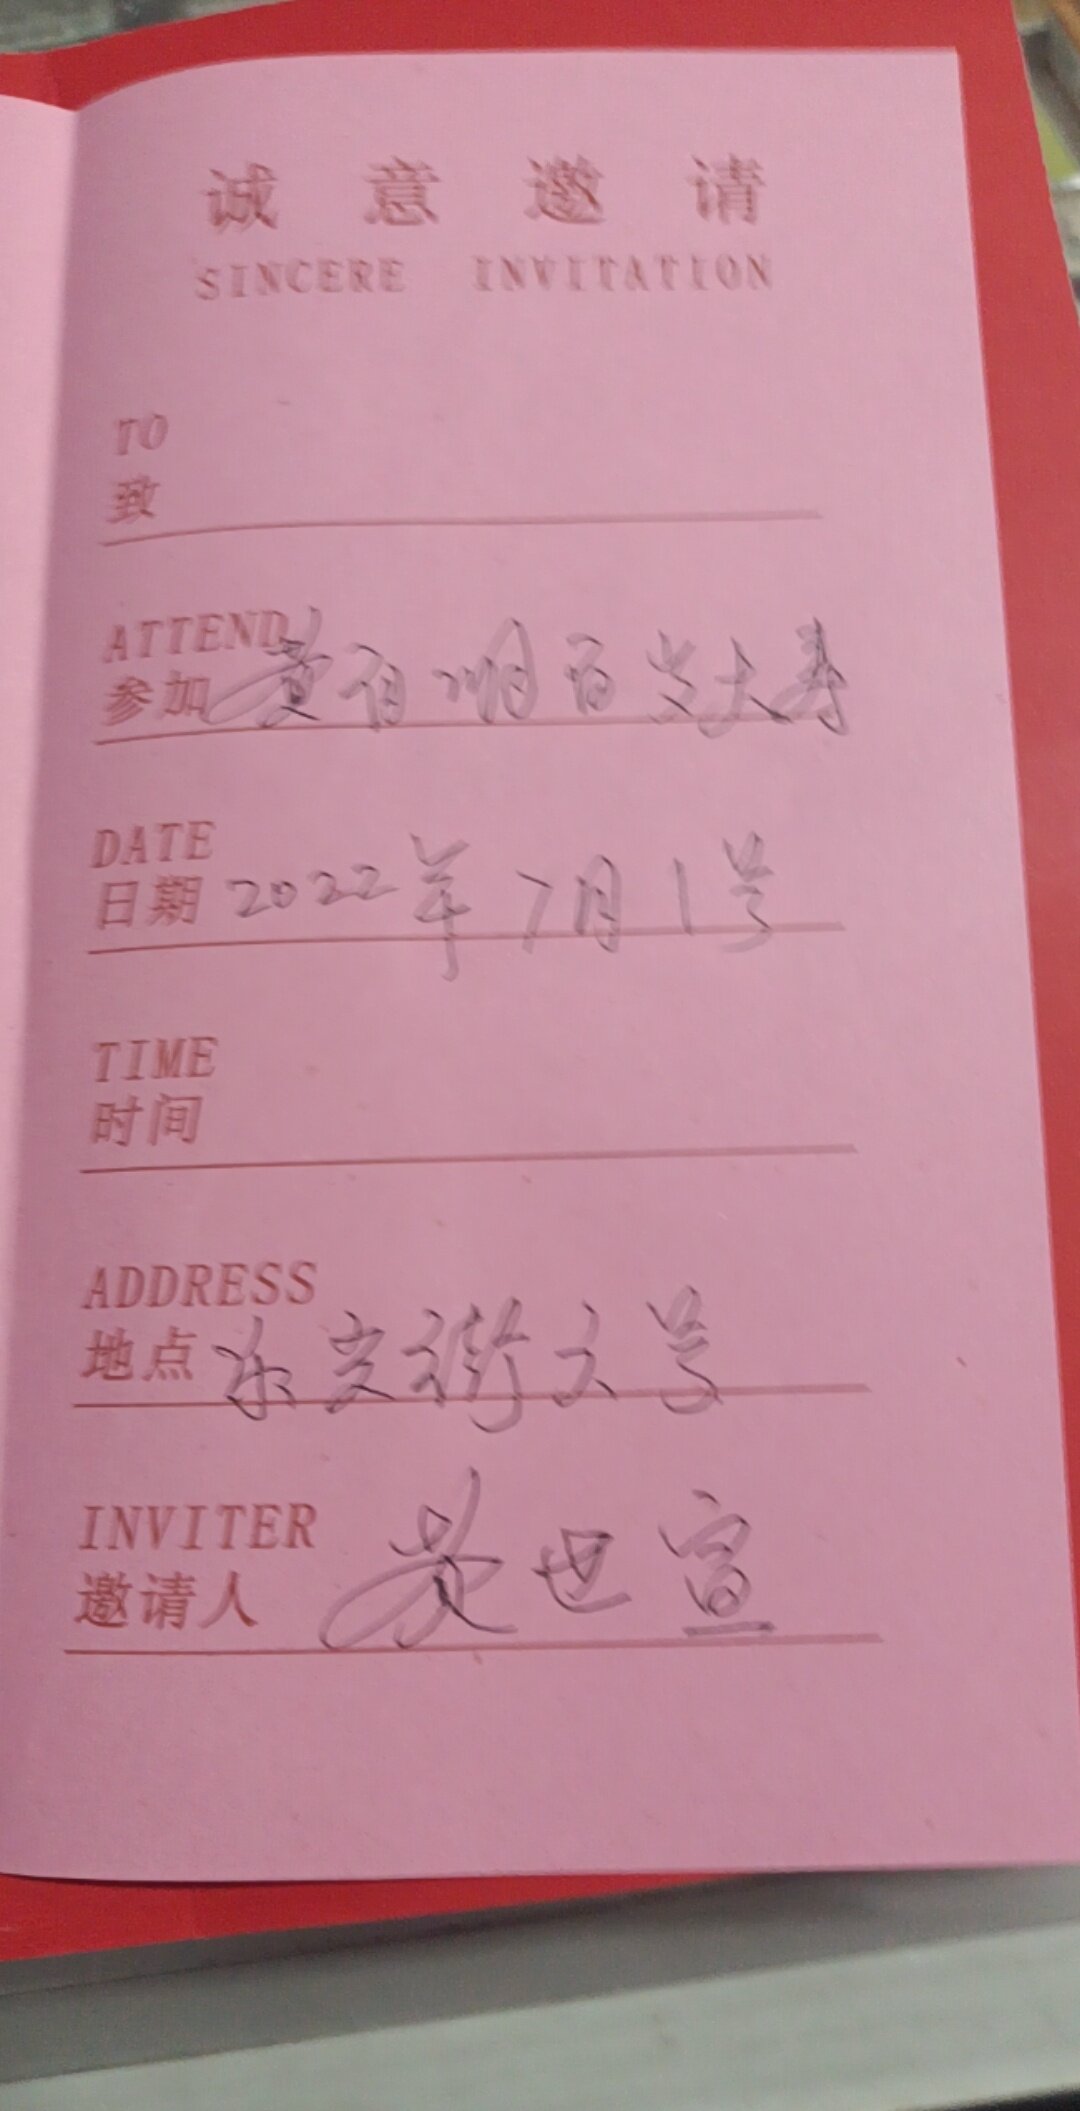 诚意邀请
SINCERE INVITATION
TO
致
ATTEND
参加 黄 百岁大寿
DATE
日期 2022年7月1号
TIME
时间
ADDRESS
地点 街 号
INVITER
邀请人 黄世宣